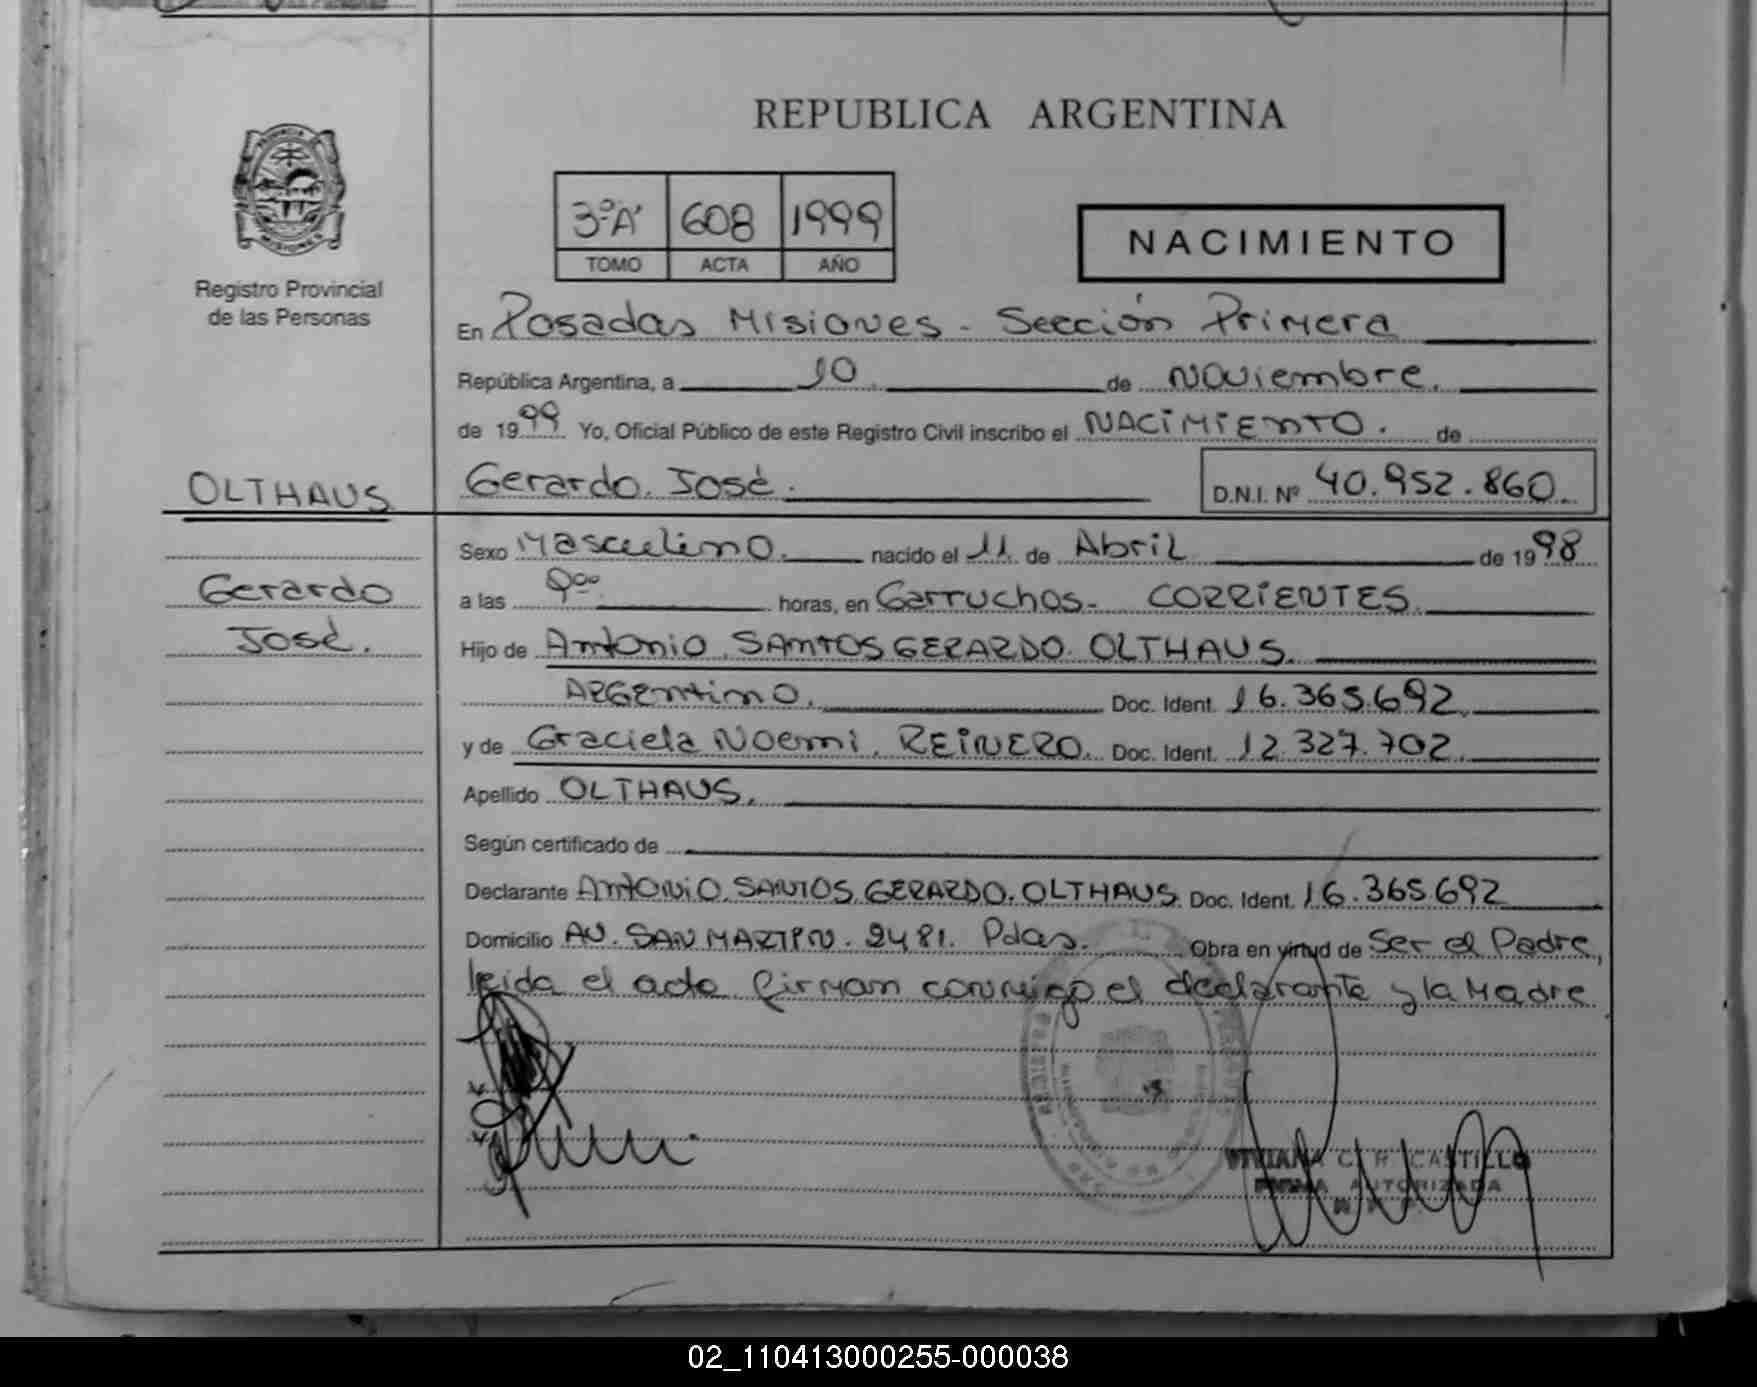 REPUBLICA ARGENTINA
PROVINCIA
MISIONES
Registro Provincial
de las Personas
3ºA' 608 1999
TOMO ACTA AÑO
NACIMIENTO
En Posadas Misiones - Sección Primera
República Argentina, a 10 de Noviembre.
de 1999 Yo, Oficial Público de este Registro Civil inscribo el NACIMIENTO. de
OLTHAUS Gerardo José. D.N.I. Nº 40.952.860
Sexo Masculino. nacido el 11 de Abril de 1998
Gerardo a las 9⁰⁰ horas, en Garruchos - CORRIENTES.
José. Hijo de Antonio SANTOS GERARDO OLTHAUS.
ARGENTINO. Doc. Ident. 16.365.692.
y de Graciela Noemi REINERO. Doc. Ident. 12.327.702.
Apellido OLTHAUS.
Según certificado de
Declarante ANTONIO SANTOS GERARDO OLTHAUS. Doc. Ident. 16.365.692
Domicilio AV. SAN MARTIN. 2481. Pdas. Obra en virtud de Ser el Padre,
leida el acta firman conmigo el declarante y la Madre
VIVIANA C. R. CASTILLO
FIRMA AUTORIZADA
02_110413000255-000038